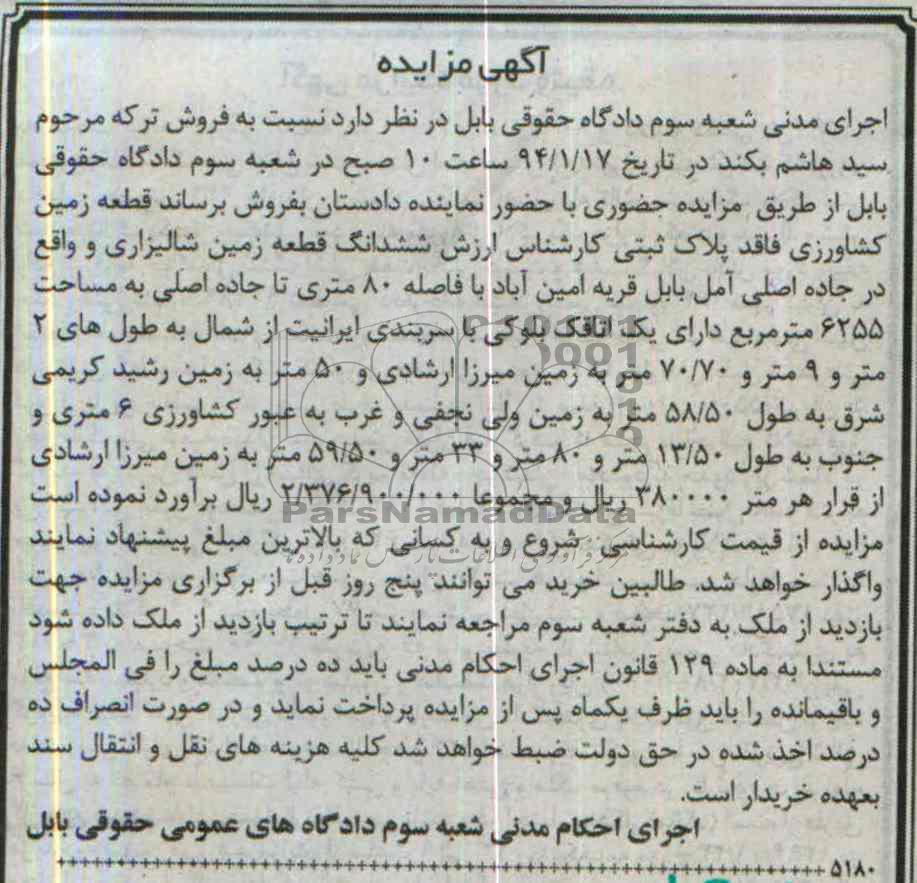 آگهی مزایده
اجرای مدنی شعبه سوم دادگاه حقوقی بابل در نظر دارد نسبت به فروش ترکه مرحوم
سید هاشم بکند در تاریخ ۹۴/۱/۱۷ ساعت ۱۰ صبح در شعبه سوم دادگاه حقوقی
بابل از طریق مزایده حضوری با حضور نماینده دادستان بفروش برساند قطعه زمین
کشاورزی فاقد پلاک ثبتی کارشناس ارزش ششدانگ قطعه زمین شالیزاری و واقع
در جاده اصلی آمل بابل قریه امین آباد با فاصله ۸۰ متری تا جاده اصلی به مساحت
۶۲۵۵ مترمربع دارای یک اتاقک بلوکی با سربندی ایرانیت از شمال به طول های ۲
متر و ۹ متر و ۷۰/۷۰ متر به زمین میرزا ارشادی و ۵۰ متر به زمین رشید کریمی
شرق به طول ۵۸/۵۰ متر به زمین ولی نجفی و غرب به عبور کشاورزی ۶ متری و
جنوب به طول ۱۳/۵۰ متر و ۸۰ متر و ۳۳ متر و ۵۹/۵۰ متر به زمین میرزا ارشادی
از قرار هر متر ۳۸۰۰۰۰ ریال و مجموعا ۲/۳۷۶/۹۰۰/۰۰۰ ریال برآورد نموده است
ParsNamadData
مزایده از قیمت کارشناسی شروع و به کسانی که بالاترین مبلغ پیشنهاد نمایند
واگذار خواهد شد. طالبین خرید می توانند پنج روز قبل از برگزاری مزایده جهت
بازدید از ملک به دفتر شعبه سوم مراجعه نمایند تا ترتیب بازدید از ملک داده شود
مستندا به ماده ۱۲۹ قانون اجرای احکام مدنی باید ده درصد مبلغ را فی المجلس
و باقیمانده را باید ظرف یکماه پس از مزایده پرداخت نماید و در صورت انصراف ده
درصد اخذ شده در حق دولت ضبط خواهد شد کلیه هزینه های نقل و انتقال سند
بعهده خریدار است.
اجرای احکام مدنی شعبه سوم دادگاه های عمومی حقوقی بابل
۵۱۸۰